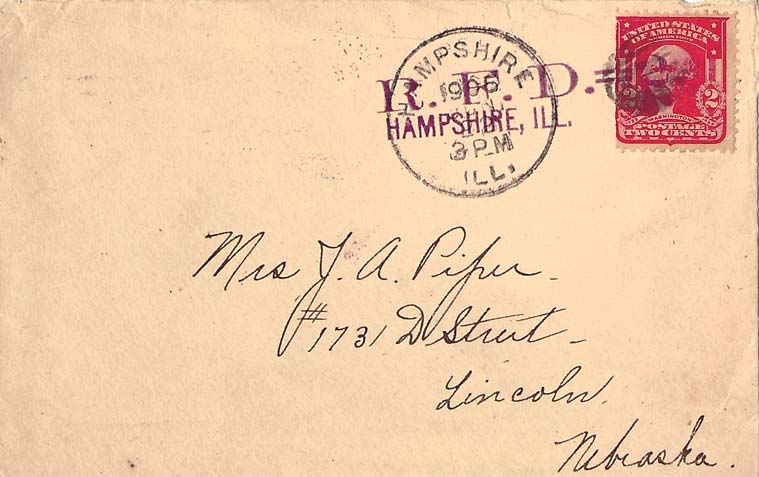 HAMPSHIRE
R. F. D.
HAMPSHIRE, ILL.
3 PM
ILL.
UNITED STATES
OF AMERICA
2
WASHINGTON
POSTAGE
TWO CENTS
Mrs J. A. Piper
#1731 D Street
Lincoln.
Nebraska.